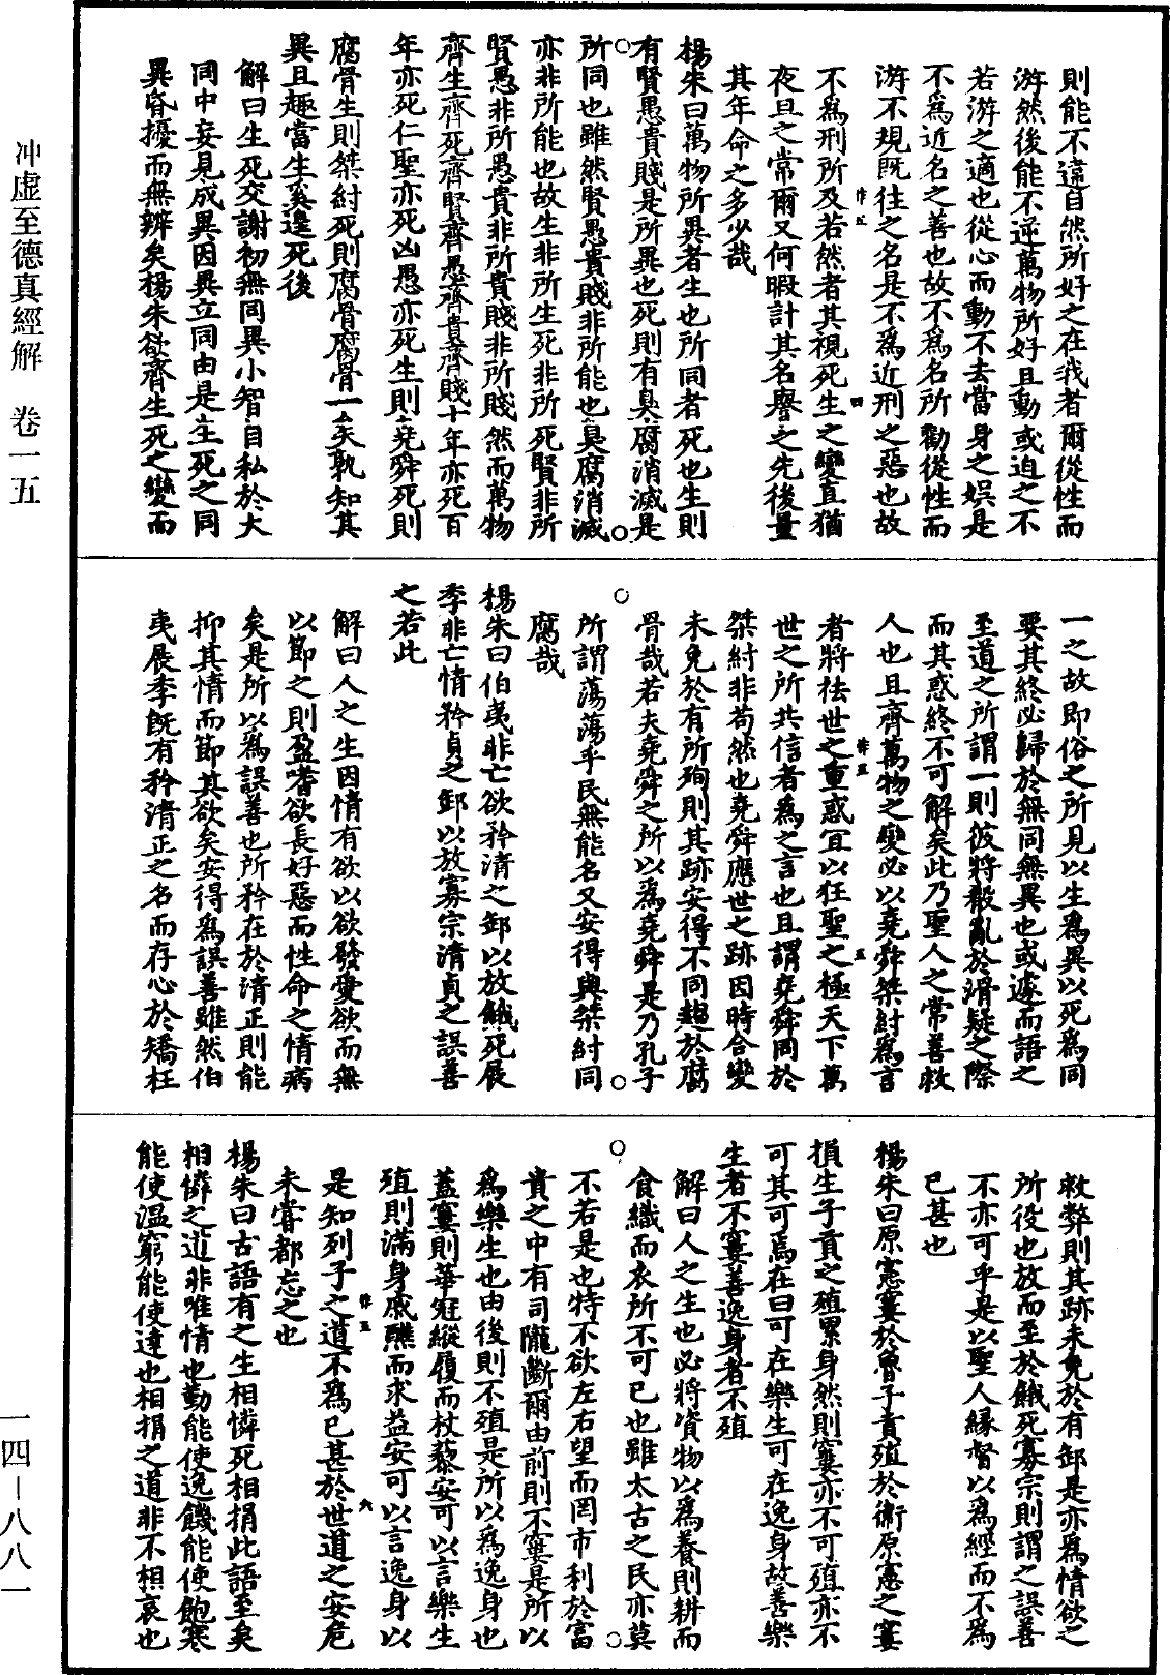 則能不違自然所好之在我者爾從性而
游然後能不逆萬物所好且動或迫之不
若游之適也從心而動不去當身之娛是
不爲近名之善也故不爲名所勸從性而
游不規既往之名是不爲近刑之惡也故
不爲刑所及若然者其視死生之變直猶
夜旦之常爾又何暇計其名譽之先後量
其年命之多少哉
楊朱曰萬物所異者生也所同者死也生則
有賢愚貴賤是所異也死則有臭腐消滅是
所同也雖然賢愚貴賤非所能也臭腐消滅
亦非所能也故生非所生死非所死賢非所
賢愚非所愚貴非所貴賤非所賤然而萬物
齊生齊死齊賢齊愚齊貴齊賤十年亦死百
年亦死仁聖亦死凶愚亦死生則堯舜死則
腐骨生則桀紂死則腐骨腐骨一矣孰知其
異且趣當生奚遑死後
解曰生死交謝初無同異小智自私於大
同中妄見成異因異立同由是生死之同
異昏擾而無辨矣楊朱欲齊生死之變而
一之故即俗之所見以生爲異以死爲同
要其終必歸於無同無異也或遽而語之
至道之所謂一則彼將殽亂於滑疑之際
而其惑終不可解矣此乃聖人之常善救
人也且齊萬物之變必以堯舜桀紂爲言
者將祛世之重惑宜以狂聖之極天下萬
世之所共信者爲之言也且謂堯舜同於
桀紂非苟然也堯舜應世之跡因時合變
未免於有所殉則其跡安得不同趨於腐
骨哉若夫堯舜之所以爲堯舜是乃孔子
所謂蕩蕩乎民無能名又安得與桀紂同
腐哉
楊朱曰伯夷非亡欲矜清之卸以放餓死展
季非亡情矜貞之卸以放寡宗清貞之誤善
之若此
解曰人之生因情有欲以欲發愛欲而無
以節之則盈嗜欲長好惡而性命之情病
矣是所以爲誤善也所矜在於清正則能
抑其情而節其欲矣安得爲誤善雖然伯
夷展季旣有矜清正之名而存心於矯枉
救弊則其跡未免於有卸是亦爲情欲之
所役也放而至於餓死寡宗則謂之誤善
不亦可乎是以聖人緣督以爲經而不爲
已甚也
楊朱曰原憲窶於魯子貢殖於衛原憲之窶
損生子貢之殖累身然則窶亦不可殖亦不
可其可焉在曰可在樂生可在逸身故善樂
生者不窶善逸身者不殖
解曰人之生也必將資物以爲養則耕而
食織而衣所不可已也雖太古之民亦莫
不若是也特不欲左右望而罔市利於富
貴之中有司隴斷爾由前則不窶是所以
爲樂生也由後則不殖是所以爲逸身也
蓋窶則華冠縰履而杖藜安可以言樂生
殖則滿身戚醮而求益安可以言逸身以
是知列子之道不爲已甚於世道之安危
未嘗都忘之也
楊朱曰古語有之生相憐死相捐此語至矣
相憐之道非唯情也勤能使逸饑能使飽寒
能使溫窮能使達也相捐之道非不相哀也
冲虛至德真經解　卷一五
一四—八八一